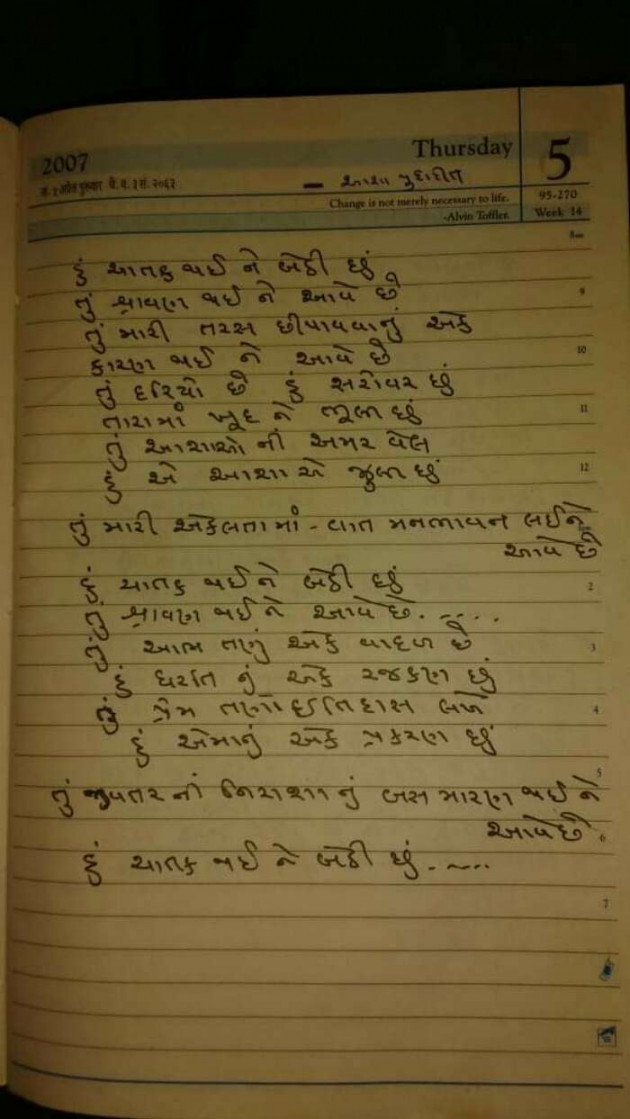 2007
Thursday
5
આશા પુરોહીત
Change is not merely necessary to life.
-Alvin Toffler.
95-270
Week 14
8am
હું ચાતક થઈ ને બેઠી છું
તું શ્રાવણ થઈ ને આવે છે
9
તું મારી તરસ છીપાવવાનું એક
કારણ થઈ ને આવે છે
10
તું દરિયો છે હું સરોવર છું
તારામાં ખૂદ ને ભૂલા છું
11
તું આશાઓ ની અમર વેલ
હું એ આશા એ જુલા છું
12
તું મારી એકલતામાં - વાત મનભાવન લઈને
આવે છે
હું ચાતક થઈ ને બેઠી છું
2
તું શ્રાવણ થઈ ને આવે છે.....
તું આભ તણું એક વાદળ છે
3
હું ધરતિ નું એક રજકણ છું
તું પ્રેમ તણો ઈતિહાસ લખે
4
હું એમાનું એક પ્રકરણ છું
5
તું જીવતર ની નિરાશા નું બસ મારણ થઈ ને
આવે છે.
6
હું ચાતક થઈ ને બેઠી છું.....
7